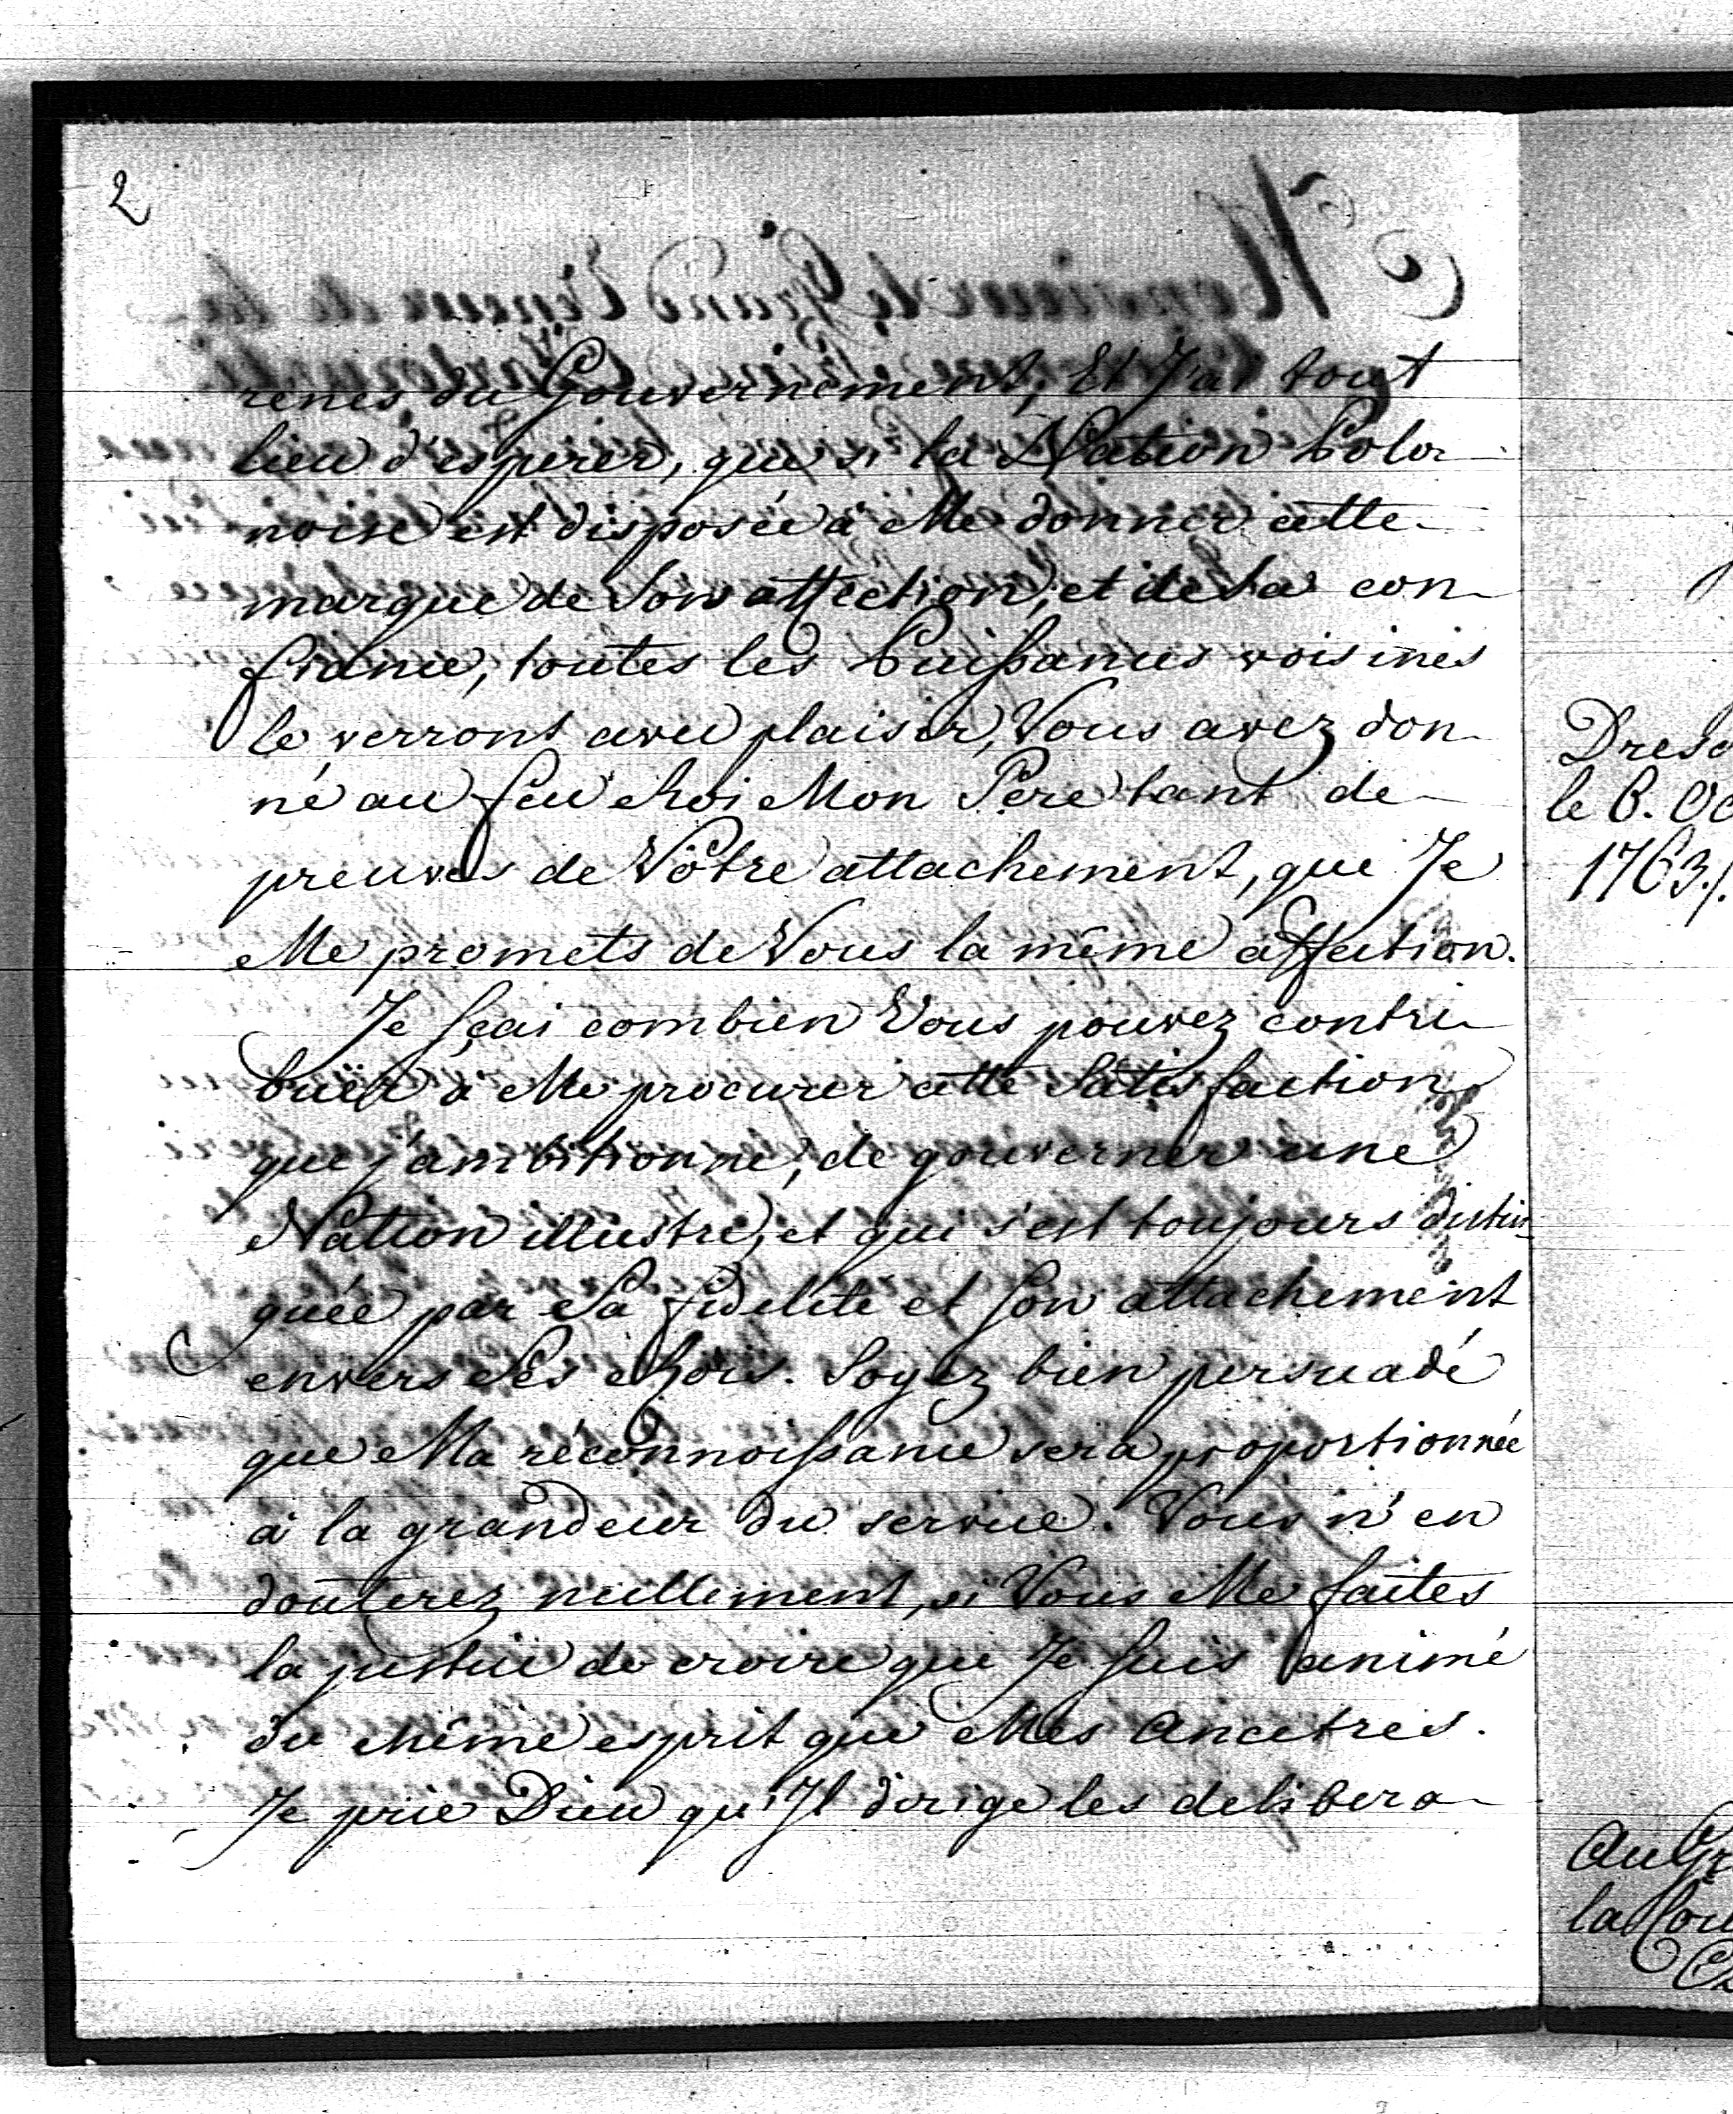 2
rênes du Gouvernement, Et J'ai tout
lieu d'esperer, que si la Nation Polo-
noise est disposée à Me donner cette
marque de Son affection, et de Sa con-
fiance, toutes les Puissances voisines
le verront avec plaisir, Vous avez don-
né au feu Roi Mon Pere tant de
preuves de Vôtre attachement, que Je
Me promets de Vous la même affection.
Je sçai combien Vous pouvez contri-
buër à Me procurer cette Satisfaction
que j'ambitionne, de gouverner une
Nation illustre, et qui s'est toujours distin-
guée par Sa fidelité et Son attachement
envers Ses Rois. Soyez bien persuadé
que Ma réconnoissance sera proportionnée
à la grandeur du service. Vous n'en
douterez nullement, si Vous Me faites
la justice de croire que Je suis animé
du même esprit que Mes Ancetres.
Je prie Dieu qu'Il dirige les delibera-
Dresd
le 6. Oc
1763.
Au Gr
la Cou